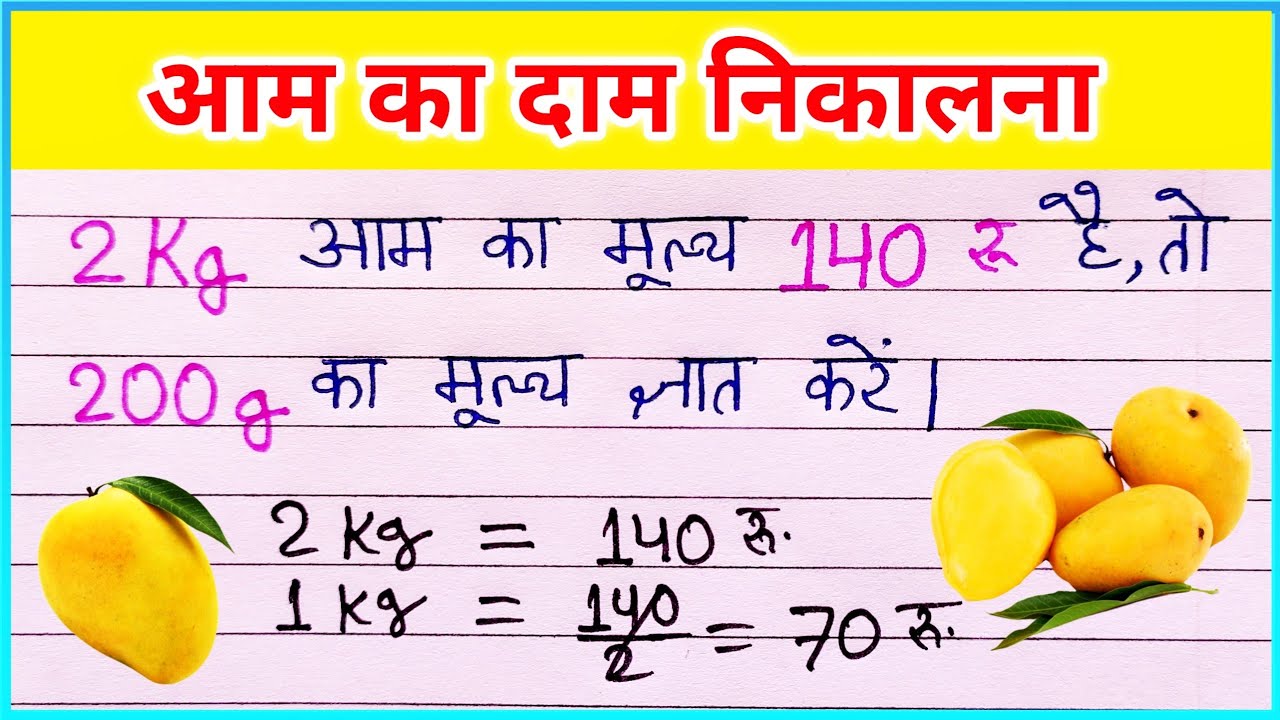 आम का दाम निकालना
2Kg आम का मूल्य 140 रू है, तो
200g का मूल्य ज्ञात करें।
2 Kg = 140 रू.
1 Kg = 140/2 = 70 रू.